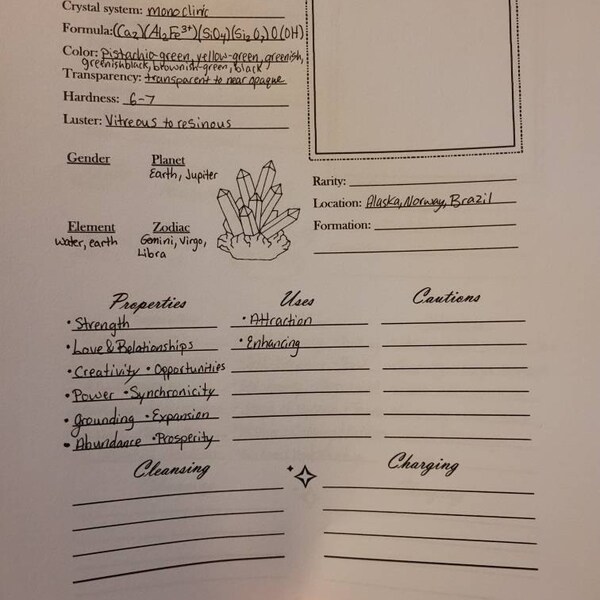 Crystal system: monoclinic
Formula: (Ca2)(Al2Fe3+)(SiO4)(Si2O7)O(OH)
Color: Pistachio-green, yellow-green, greenish,
greenishblack, brownish-green, black
Transparency: transparent to near opaque
Hardness: 6-7
Luster: Vitreous to resinous
Gender Planet
Earth, Jupiter
Rarity:
Location: Alaska, Norway, Brazil
Formation:
Element Zodiac
water, earth Gemini, Virgo,
Libra
Properties Uses Cautions
• Strength • Attraction
• Love & Relationships • Enhancing
• Creativity • Opportunities
• Power • Synchronicity
• grounding • Expansion
• Abundance • Prosperity
Cleansing Charging